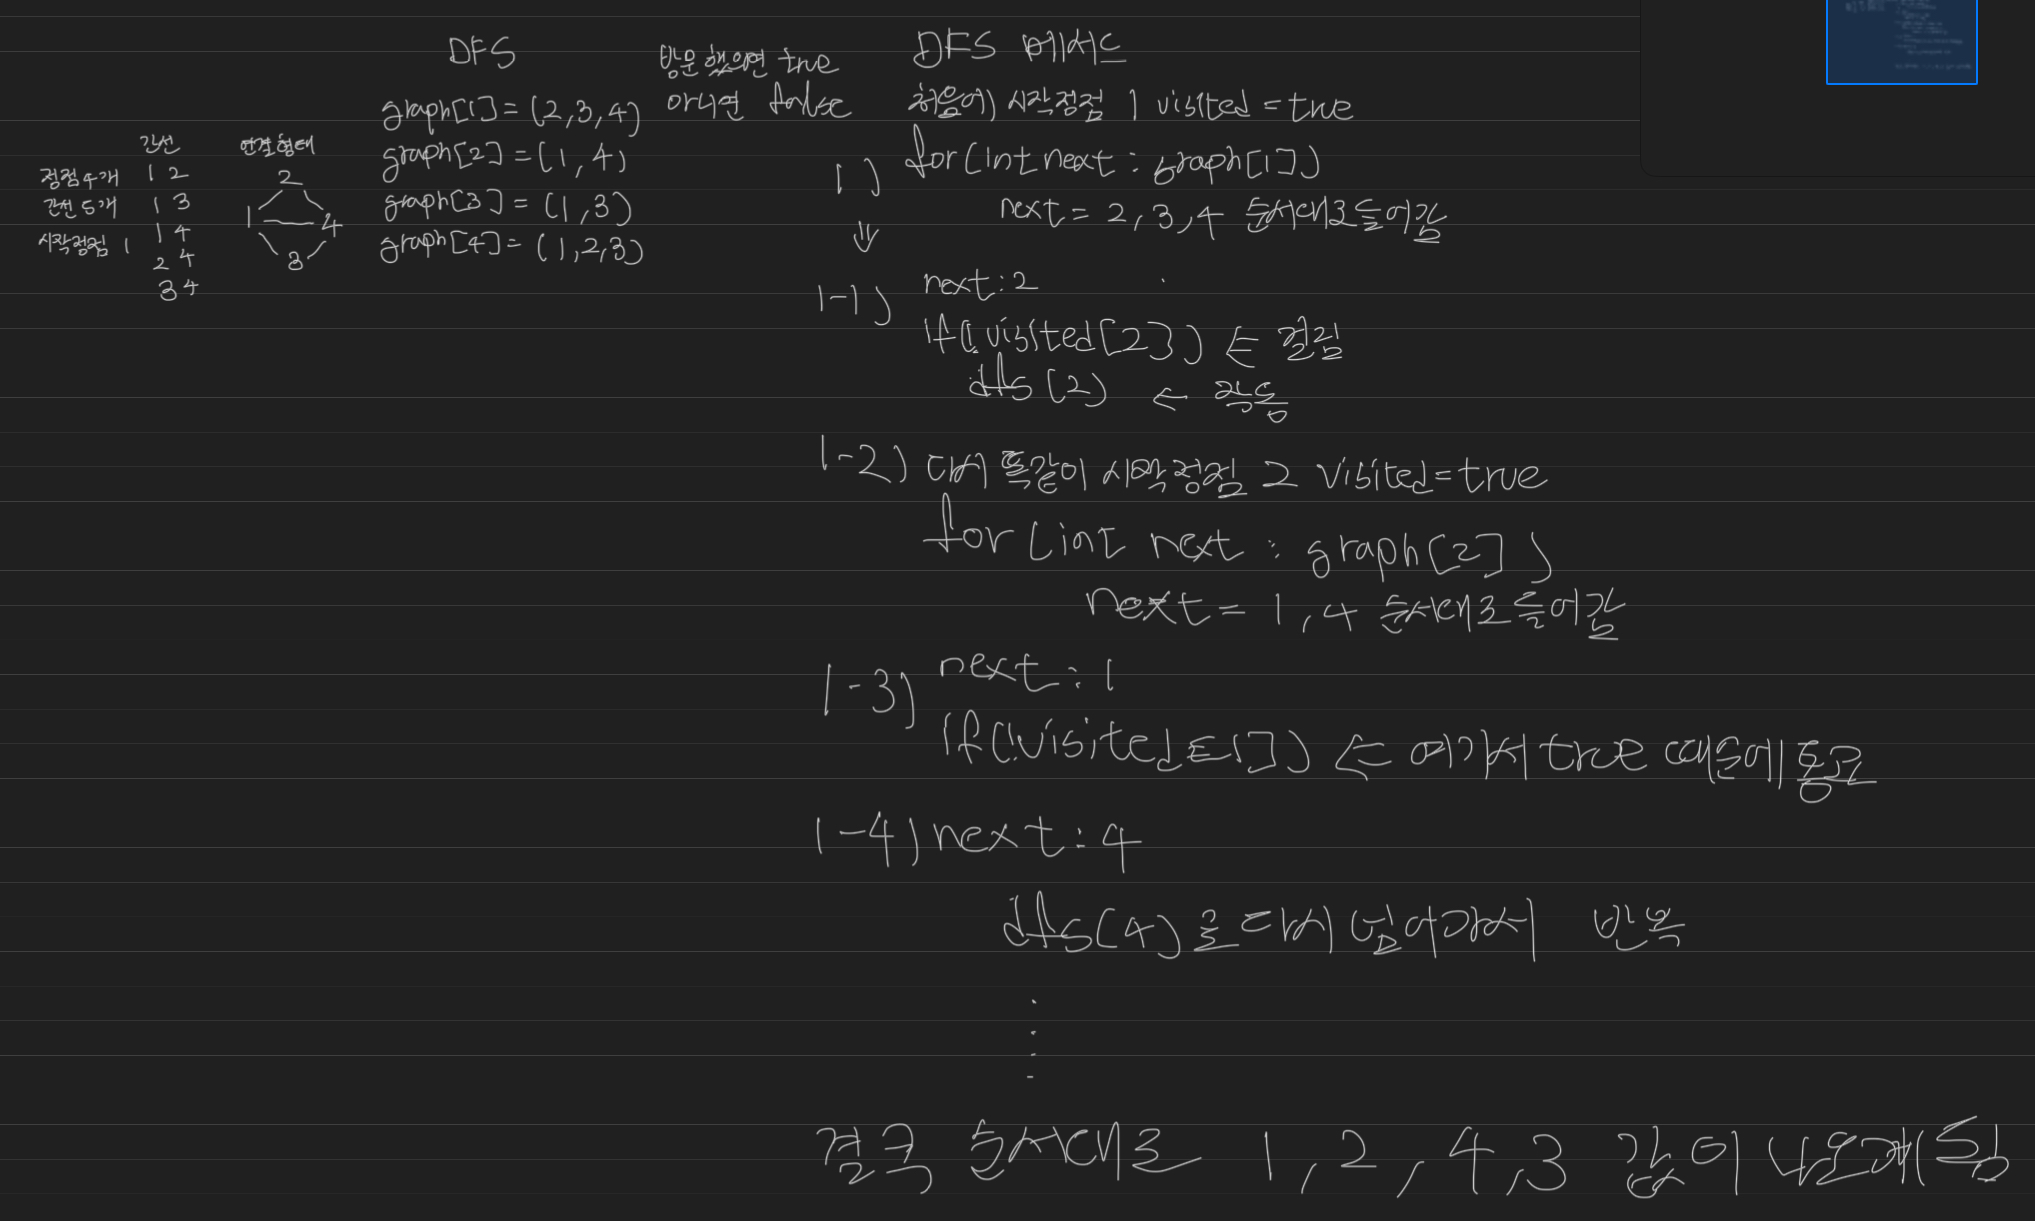 DFS
graph[1] = (2,3,4)
graph[2] = (1,4)
graph[3] = (1,3)
graph[4] = (1,2,3)
방문 했으면 true
아니면 false
간선
1 2
1 3
1 4
2 4
3 4
정점 4개
간선 5개
시작정점 1
연결형태
2
1
4
3
DFS 메서드
처음에 시작정점 1 visited = true
1) for(int next : graph[1])
next = 2,3,4 순서대로 들어감
⇓
1-1) next : 2
if(!visited[2]) ⇐ 걸림
dfs(2) ← 작동
1-2) 다시 똑같이 시작정점 2 visited=true
for(int next : graph[2])
next = 1,4 순서대로 들어감
1-3) next : 1
if(!visited[1]) ⇐ 여기서 true 때문에 통과
1-4) next : 4
dfs(4)로 다시 넘어가서 반복
결국 순서대로 1,2,4,3 값이 나오게 됨